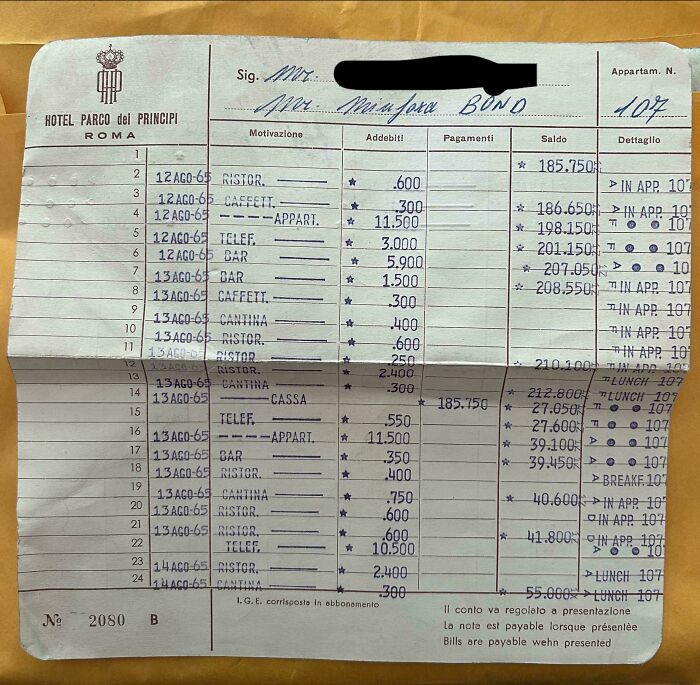 HOTEL PARCO dei PRINCIPI
ROMA
Sig. Mr.
Mr. BOND
Appartam. N.
107
Motivazione Addebiti Pagamenti Saldo Dettaglio
1 * 185.750
2 12 AGO-65 RISTOR. * .600 A IN APP. 107
3 12 AGO-65 CAFFETT. * .300 * 186.650 A IN APP. 107
4 12 AGO-65 APPART. * 11.500 * 198.150 F 107
5 12 AGO-65 TELEF. * 3.000 * 201.150 F 107
6 12 AGO-65 BAR * 5.900 * 207.050 A 107
7 13 AGO-65 BAR * 1.500 * 208.550 F IN APP. 107
8 13 AGO-65 CAFFETT. * .300 F IN APP. 107
9 13 AGO-65 CANTINA * .400 F IN APP. 107
10 13 AGO-65 RISTOR. * .600 F IN APP. 107
11 13 AGO-65 RISTOR. * .250 * 210.100 F IN APP. 107
12 13 AGO-65 RISTOR. * 2.400 F LUNCH 107
13 13 AGO-65 CANTINA * .300 * 212.800 F LUNCH 107
14 13 AGO-65 CASSA * 185.750 * 27.050 F 107
15 TELEF. * .550 * 27.600 F 107
16 13 AGO-65 APPART. * 11.500 * 39.100 A 107
17 13 AGO-65 BAR * .350 * 39.450 A 107
18 13 AGO-65 RISTOR. * .400 A BREAKF. 107
19 13 AGO-65 CANTINA * .750 * 40.600 A IN APP. 107
20 13 AGO-65 RISTOR. * .600 D IN APP. 107
21 13 AGO-65 RISTOR. * .600 * 41.800 D IN APP. 107
22 TELEF. * 10.500 A 107
23 14 AGO-65 RISTOR. * 2.400 A LUNCH 107
24 14 AGO-65 CANTINA * .300 * 55.000 A LUNCH 107
I.G.E. corrisposta in abbonamento
Nº 2080 B
Il conto va regolato a presentazione
La note est payable lorsque présentèe
Bills are payable wehn presented